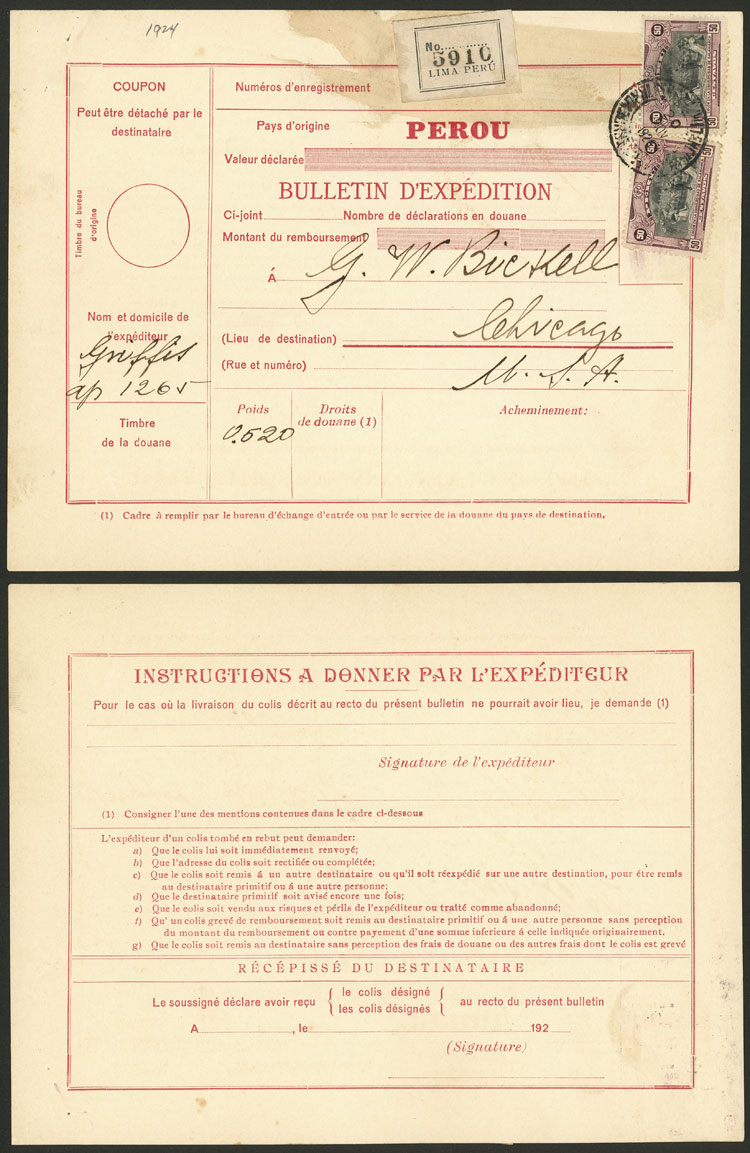 1924
No. ............
5910
LIMA PERÚ
50
50
50
50
COUPON
Peut être détaché par le
destinataire
Timbre du bureau
d'origine
Nom et domicile de
l'expéditeur
Griffis
ap 1265
Timbre
de la douane
Numéros d'enregistrement
Pays d'origine PEROU
Valeur déclarée
BULLETIN D'EXPÉDITION
Ci-joint Nombre de déclarations en douane
Montant du remboursement
Á G. W. Bickell
(Lieu de destination) Chicago
(Rue et numéro) U. S. A.
Poids
0.520
Droits
de douane (1)
Acheminement:
(1) Cadre à remplir par le bureau d'échange d'entrée ou par le service de la douane du pays de destination.
INSTRUCTIONS A DONNER PAR L'EXPÉDITEUR
Pour le cas où la livraison du colis décrit au recto du présent bulletin ne pourrait avoir lieu, je demande (1)
Signature de l'expéditeur
(1) Consigner l'une des mentions contenues dans le cadre ci-dessous
L'expéditeur d'un colis tombé en rebut peut demander:
a) Que le colis lui soit immédiatement renvoyé;
b) Que l'adresse du colis soit rectifiée ou complétée;
c) Que le colis soit remis á un autre destinataire ou qu'il soit réexpédié sur une autre destination, pour être remis
au destinataire primitif ou á une autre personne;
d) Que le destinataire primitif soit avisé encore une fois;
e) Que le colis soit vendu aux risques et périls de l'expéditeur ou traité comme abandonné;
f) Qu' un colis grevé de remboursement soit remis au destinataire primitif ou á une autre personne sans perception
du montant du remboursement ou contre payement d'une somme inferieure á celle indiquée originairement.
g) Que le colis soit remis au destinataire sans perception des frais de douane ou des autres frais dont le colis est grevé
RÉCÉPISSÉ DU DESTINATAIRE
Le soussigné déclare avoir reçu { le colis désigné / les colis désignés { au recto du présent bulletin
A , le 192
(Signature)